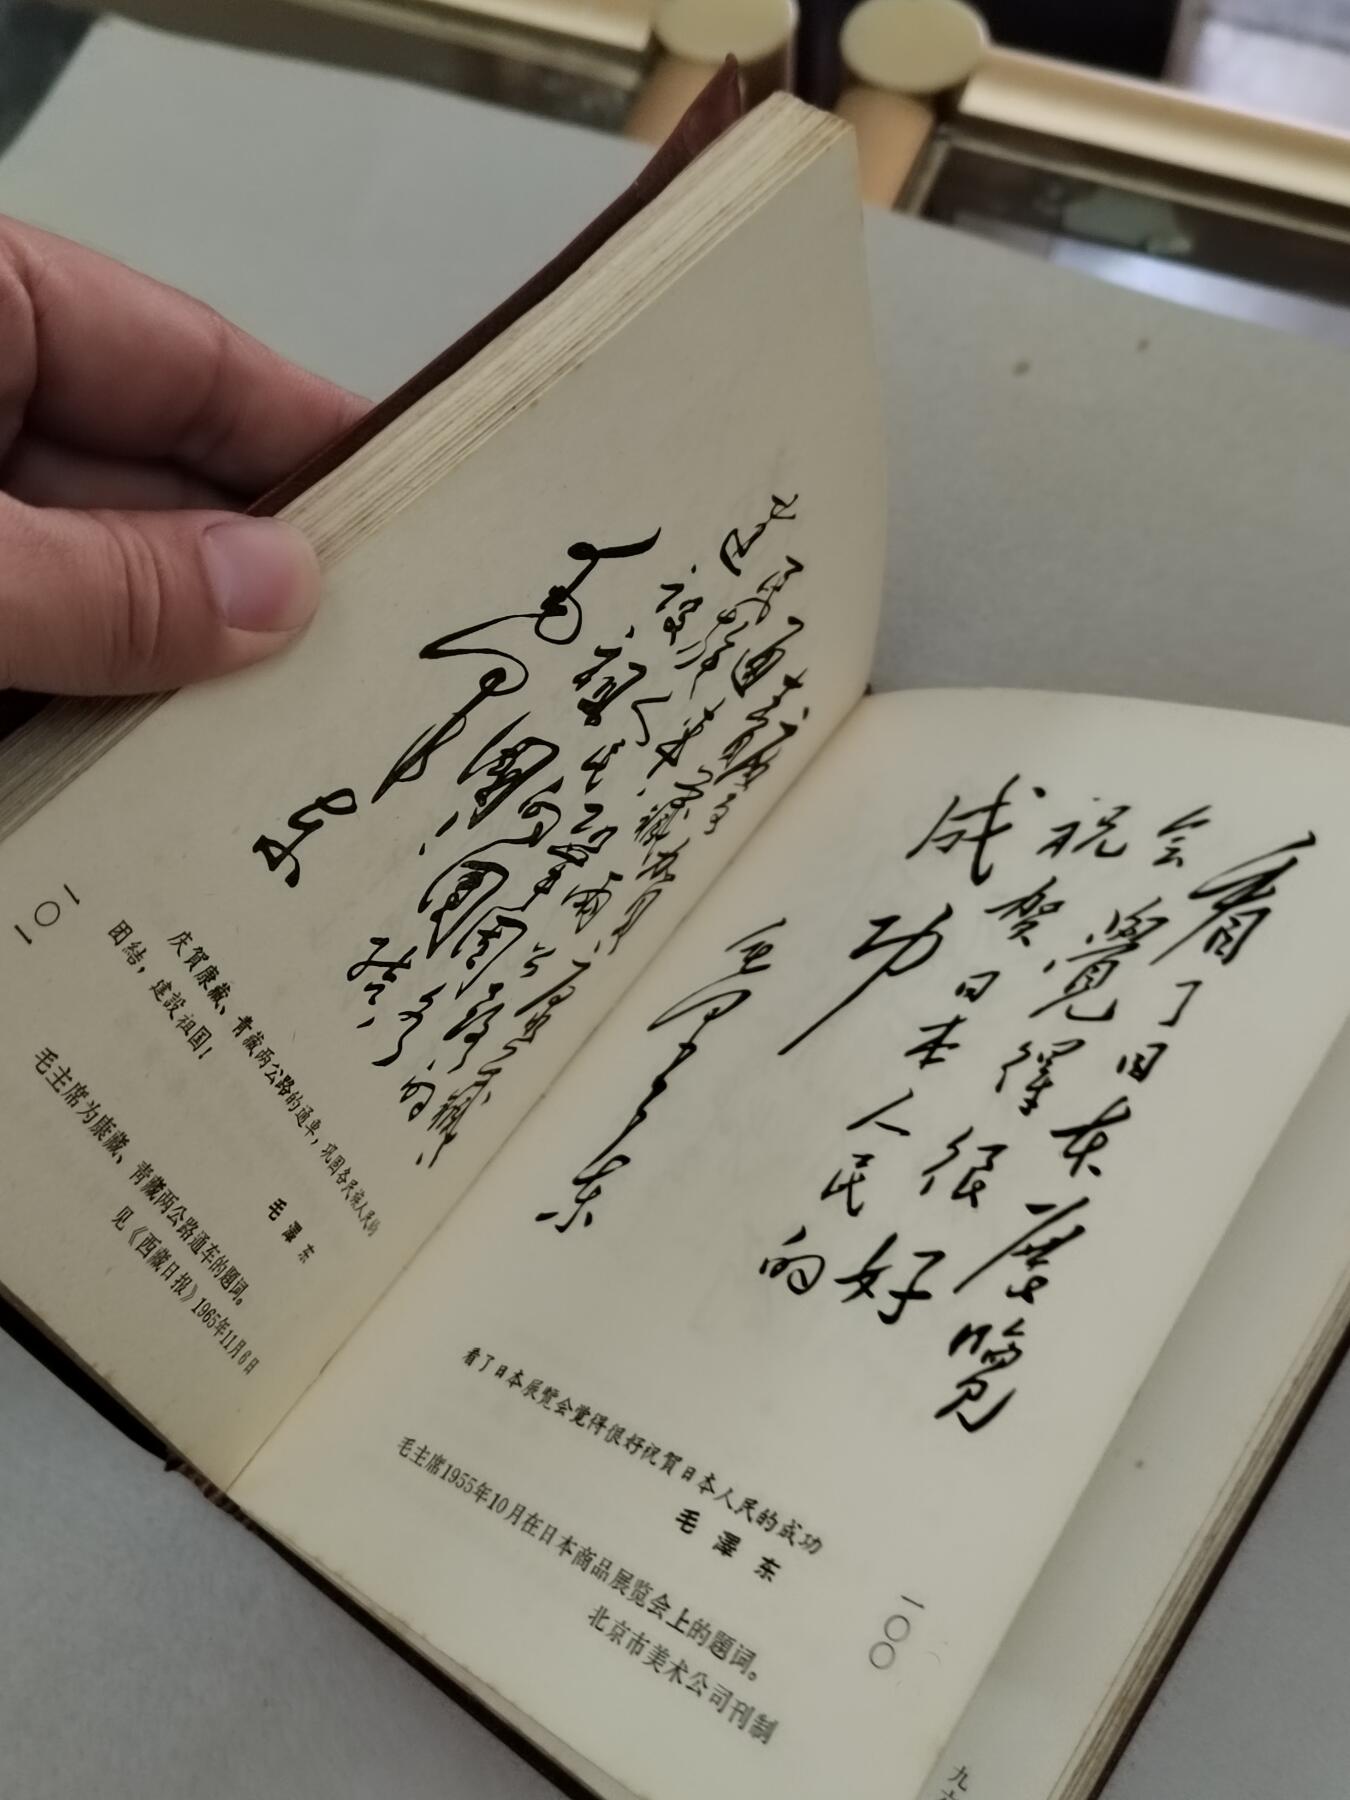 看了日本展覽
会覺得很好
祝贺日本人民的
成功
毛泽东
看了日本展覽会觉得很好祝賀日本人民的成功
毛澤东
毛主席1955年10月在日本商品展览会上的题词。
北京市美术公司刊制
一〇〇
毛泽东
庆賀康藏、青藏两公路的通車，巩固各民族人民的
团結，建設祖国！
毛澤东
毛主席为康藏、青藏两公路通车的题词。
见《西藏日报》1965年11月6日
一〇一
九